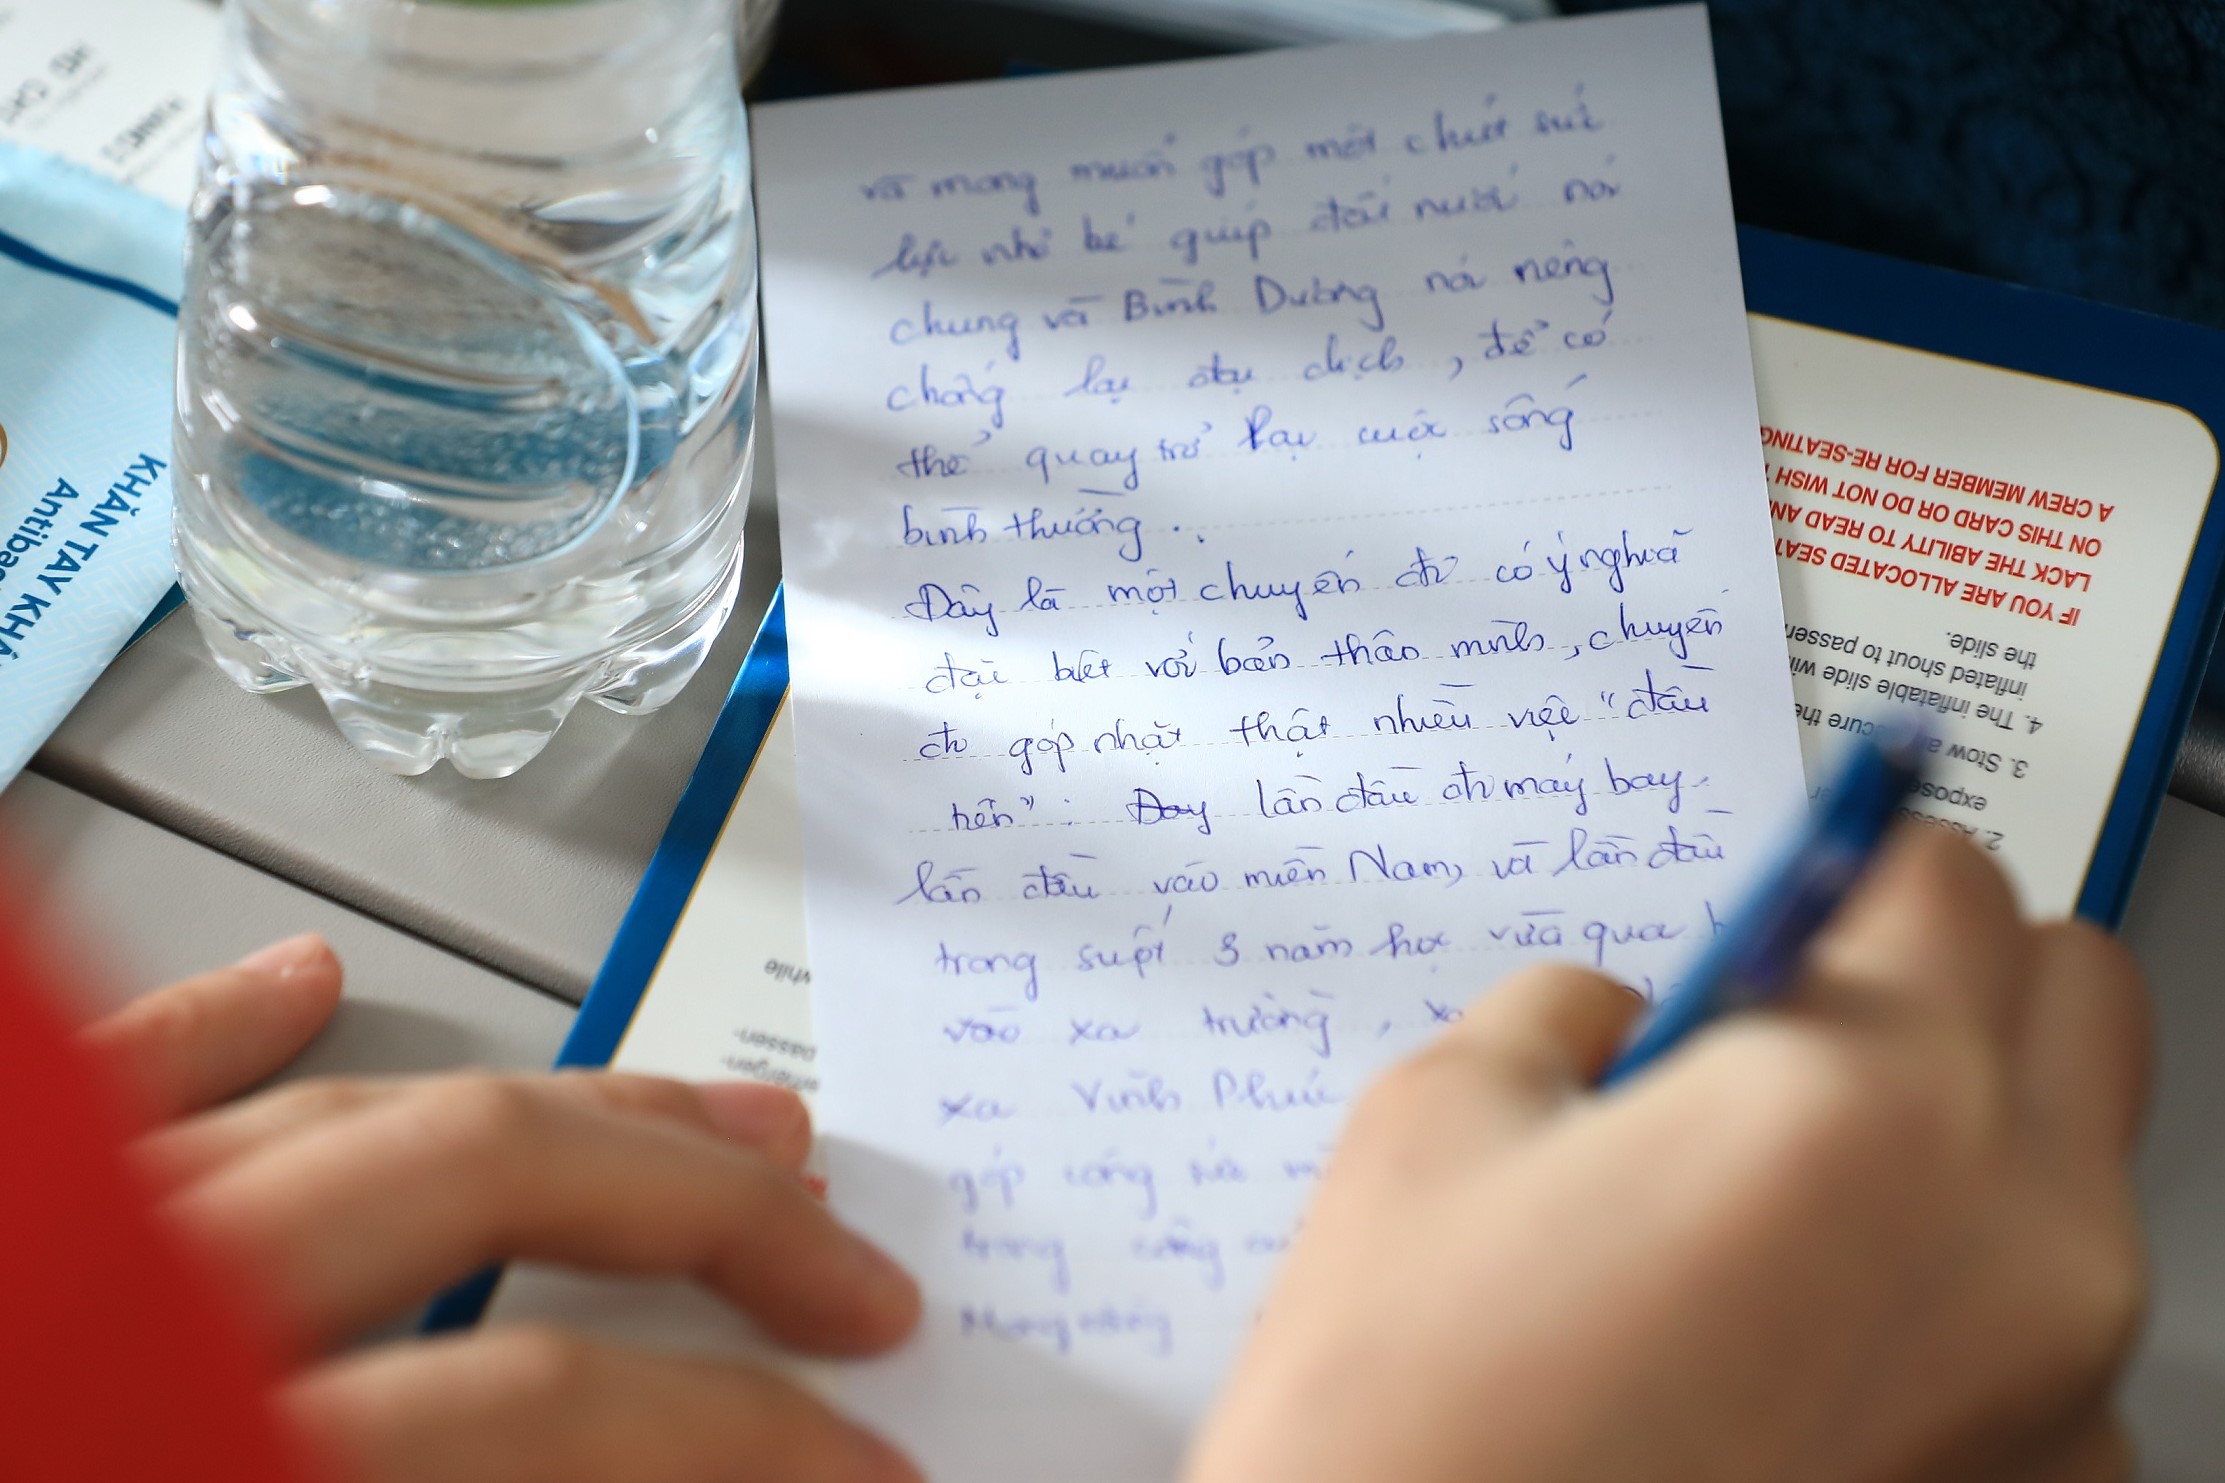 và mong muốn góp một chút sức
lực nhỏ bé giúp đất nước nói
chung và Bình Dương nói riêng
chống lại đại dịch, để có
thể quay trở lại cuộc sống
bình thường..
Đây là một chuyến đi có ý nghĩa
đặc biệt với bản thân mình, chuyến
đi góp nhặt thật nhiều việc "đầu
tiên": Đay lần đầu đi máy bay,
lần đầu vào miền Nam, và lần đầu
trong suốt 3 năm học vừa qua
vào xa trường,
xa Vĩnh Phúc
góp công sức
trong công
KHĂN TAY KHÁ
IF YOU ARE ALLOCATED SEAT
LACK THE ABILITY TO READ AN
ON THIS CARD OR DO NOT WISH
A CREW MEMBER FOR RE-SEATING
the slide.
inflated shout to passen
4. The inflatable slide wi
3. Stow
while
passen-